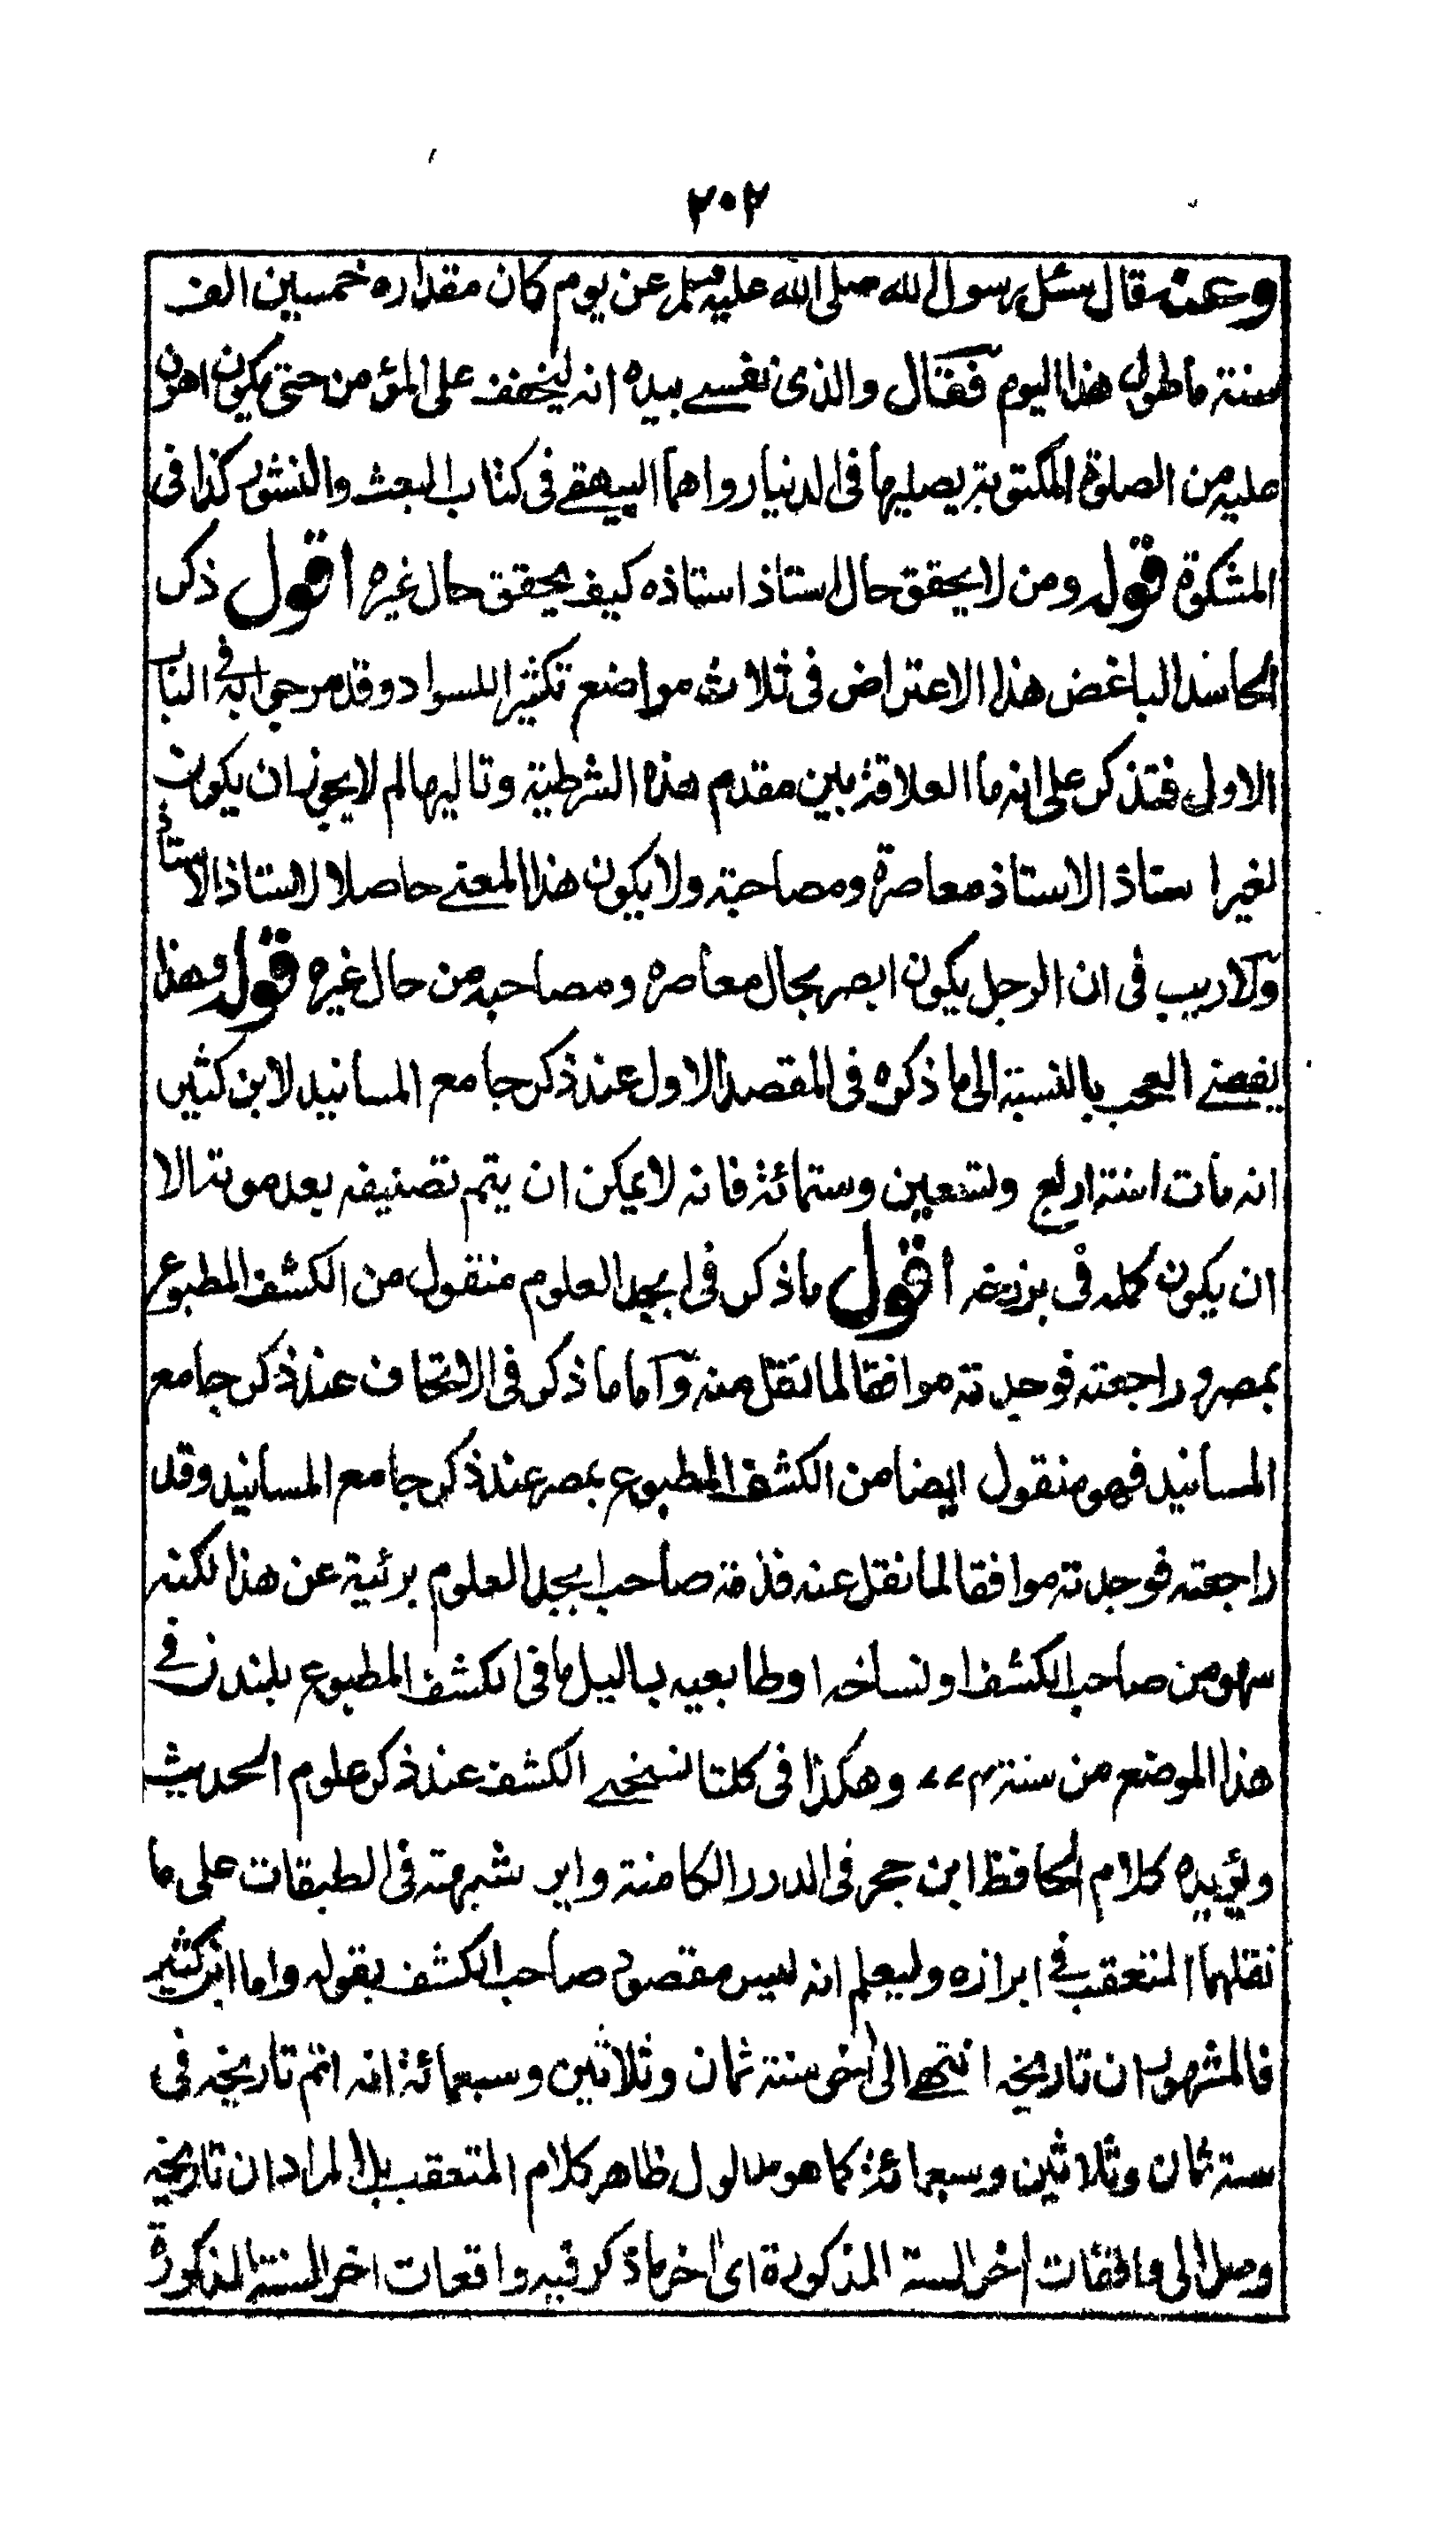 ٢٠٢
وعنه قال سئل رسول الله صلى الله عليه وسلم عن يوم كان مقداره خمسين الف
سنة ما طول هذا اليوم فقال والذى نفسى بيده انه ليخفف على المؤمن حتى يكون اهون
عليه من الصلوة المكتوبة يصليها فى الدنيا رواهما البيهقى فى كتاب البعث والنشور كذا فى
المشكوة قوله ومن لا يحقق حال استاذ استاذه كيف يحقق حال غيره اقول ذكر
الحاسد الباغض هذا الاعتراض فى ثلاث مواضع تكثيرا للسواد وقد مر جوابه فى الباب
الاول فتذكر على انه ما العلاقة بين مقدم هذه الشرطية وتاليها لم لا يجوز ان يكون
لغير استاذ الاستاذ معاصرة ومصاحبة ولا يكون هذا المعنى حاصلا لاستاذ الاستاذ
ولا ريب فى ان الرجل يكون ابصر بحال معاصره ومصاحبه من حال غيره قوله وهذا
يفضى العجب بالنسبة الى ما ذكره فى المقصد الاول عند ذكر جامع المسانيد لابن كثير
انه مات سنة اربع وتسعين وستمائة فانه لا يمكن ان يتم تصنيفه بعد موته الا
ان يكون كمله فى برزخه اقول ما ذكر فى ابجد العلوم منقول من الكشف المطبوع
بمصر وراجعته فوجدته موافقا لما نقل منه وآما ما ذكر فى الاتحاف عند ذكر جامع
المسانيد فهو منقول ايضا من الكشف المطبوع بمصر عند ذكر جامع المسانيد وقد
راجعته فوجدته موافقا لما نقل عنه فذمة صاحب ابجد العلوم برئية عن هذا لكنه
سهو من صاحب الكشف او نساخه او طابعيه بدليل ما فى الكشف المطبوع بلندن فى
هذا الموضع من سنة ٧٧٤ وهكذا فى كلتا نسختى الكشف عند ذكر علوم الحديث
ويؤيده كلام الحافظ ابن حجر فى الدرر الكامنة وابن شبهة فى الطبقات على ما
نقلهما المتعقب فى ابرازه وليعلم انه ليس مقصود صاحب الكشف بقوله واما ابن كثير
فالمشهور ان تاريخه انتهى الى اخر سنة ثمان وثلاثين وسبعمائة انه اتم تاريخه فى
سنة ثمان وثلاثين وسبعمائة كما هو مدلول ظاهر كلام المتعقب بل المراد ان تاريخه
وصل الى واقعات اخر السنة المذكورة اى اخر ما ذكر فيه واقعات اخر السنة المذكورة